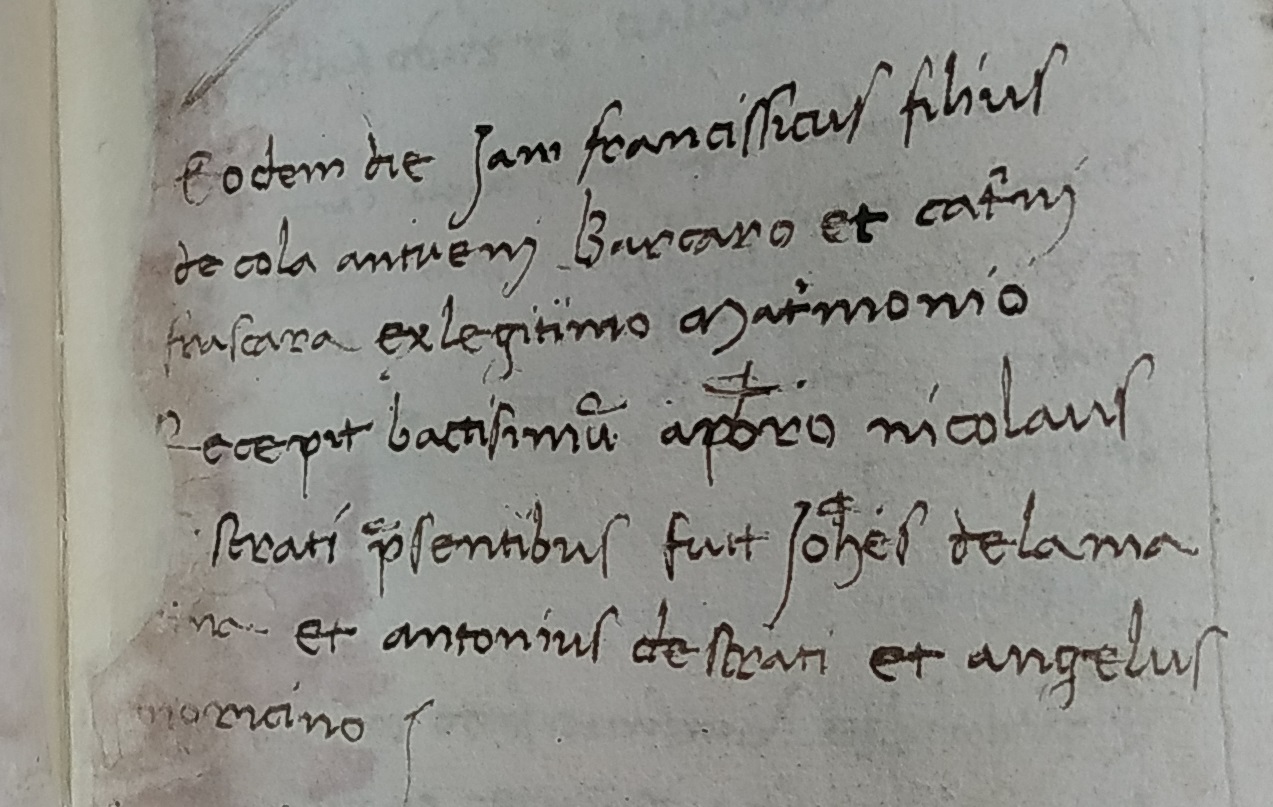 Eodem die Jam francissicus filius
de cola antuenj Barcaro et catr̃nj
fruscara ex legitimo Matr̃monio
Recepit bactisimũ a pb̃ro nicolaus
strati p̃sentibus fuit Joh̃es de lama
et antonius de strati et angelus
morcino